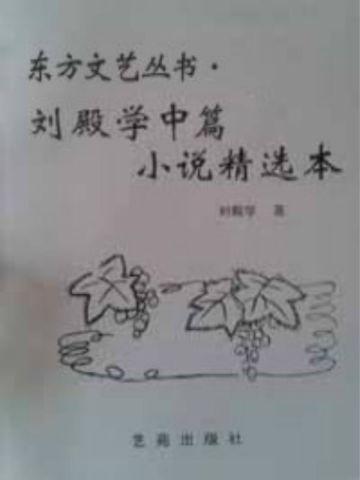 东方文艺丛书·
刘殿学中篇
小说精选本
刘殿学 著
艺苑出版社